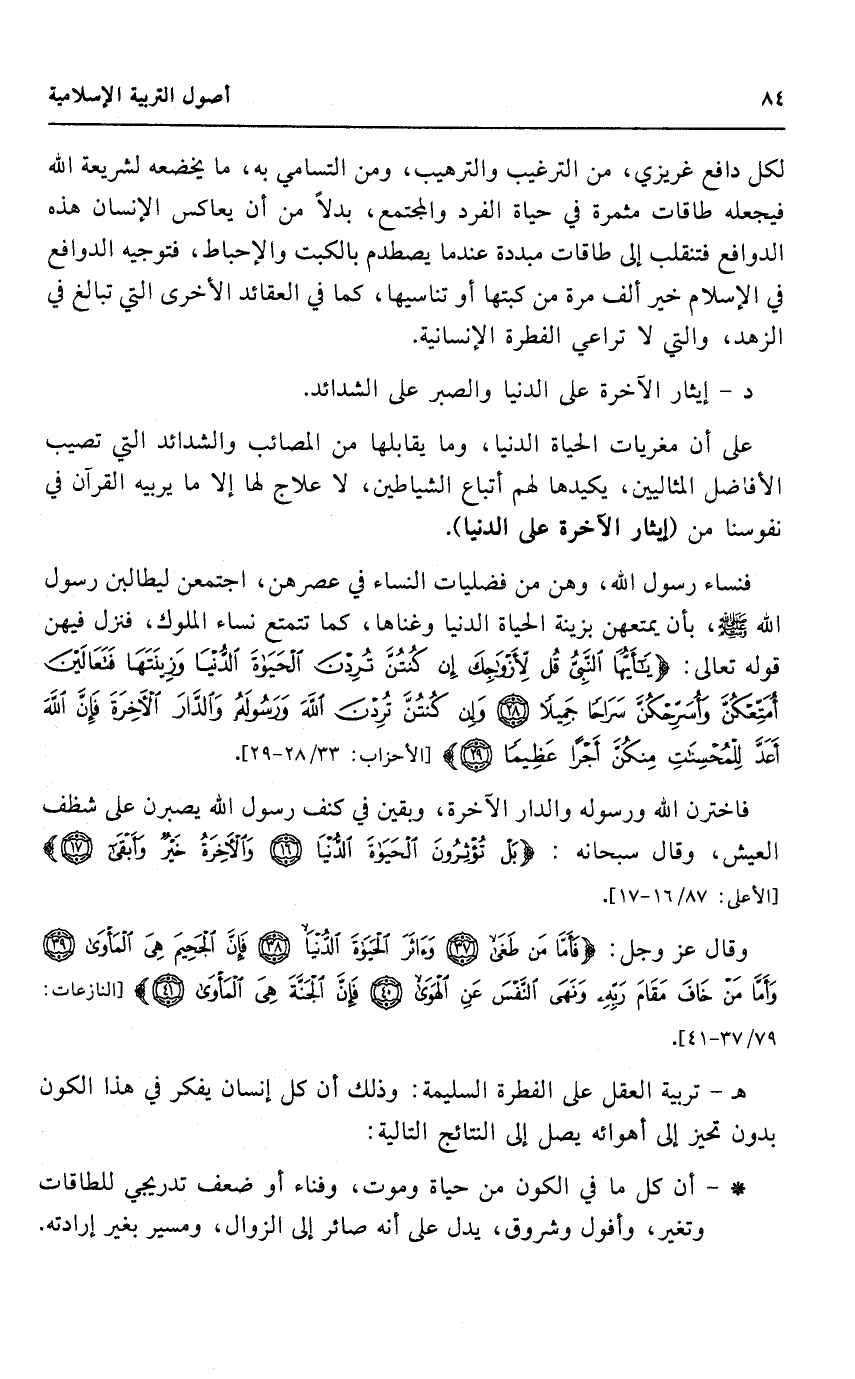 ٨٤
أصول التربية الإسلامية
لكل دافع غريزي، من الترغيب والترهيب، ومن التسامي به، ما يخضعه لشريعة الله
فيجعله طاقات مثمرة في حياة الفرد والمجتمع، بدلاً من أن يعاكس الإنسان هذه
الدوافع فتنقلب إلى طاقات مبددة عندما يصطدم بالكبت والإحباط، فتوجيه الدوافع
في الإسلام خير ألف مرة من كبتها أو تناسيها، كما في العقائد الأخرى التي تبالغ في
الزهد، والتي لا تراعي الفطرة الإنسانية.
د - إيثار الآخرة على الدنيا والصبر على الشدائد.
على أن مغريات الحياة الدنيا، وما يقابلها من المصائب والشدائد التي تصيب
الأفاضل المثاليين، يكيدها لهم أتباع الشياطين، لا علاج لها إلا ما يربيه القرآن في
نفوسنا من (إيثار الآخرة على الدنيا).
فنساء رسول الله، وهن من فضليات النساء في عصرهن، اجتمعن ليطالبن رسول
الله ﷺ، بأن يمتعهن بزينة الحياة الدنيا وغناها، كما تتمتع نساء الملوك، فنزل فيهن
قوله تعالى: ﴿يَٰٓأَيُّهَا ٱلنَّبِيُّ قُل لِّأَزْوَٰجِكَ إِن كُنتُنَّ تُرِدْنَ ٱلْحَيَوٰةَ ٱلدُّنْيَا وَزِينَتَهَا فَتَعَالَيْنَ
أُمَتِّعْكُنَّ وَأُسَرِّحْكُنَّ سَرَاحًا جَمِيلًا ٢٨ وَإِن كُنتُنَّ تُرِدْنَ ٱللَّهَ وَرَسُولَهُۥ وَٱلدَّارَ ٱلْءَاخِرَةَ فَإِنَّ ٱللَّهَ
أَعَدَّ لِلْمُحْسِنَٰتِ مِنكُنَّ أَجْرًا عَظِيمًا ٢٩﴾ [الأحزاب: ٢٨/٣٣-٢٩].
فاخترن الله ورسوله والدار الآخرة، وبقين في كنف رسول الله يصبرن على شظف
العيش، وقال سبحانه : ﴿بَلْ تُؤْثِرُونَ ٱلْحَيَوٰةَ ٱلدُّنْيَا ١٦ وَٱلْءَاخِرَةُ خَيْرٌ وَأَبْقَىٰٓ ١٧﴾
[الأعلى: ١٦/٨٧-١٧].
وقال عز وجل: ﴿فَأَمَّا مَن طَغَىٰ ٣٧ وَءَاثَرَ ٱلْحَيَوٰةَ ٱلدُّنْيَا ٣٨ فَإِنَّ ٱلْجَحِيمَ هِىَ ٱلْمَأْوَىٰ ٣٩
وَأَمَّا مَنْ خَافَ مَقَامَ رَبِّهِۦ وَنَهَى ٱلنَّفْسَ عَنِ ٱلْهَوَىٰ ٤٠ فَإِنَّ ٱلْجَنَّةَ هِىَ ٱلْمَأْوَىٰ ٤١﴾ [النازعات:
٣٧/٧٩-٤١].
هـ - تربية العقل على الفطرة السليمة: وذلك أن كل إنسان يفكر في هذا الكون
بدون تحيز إلى أهوائه يصل إلى النتائج التالية:
* - أن كل ما في الكون من حياة وموت، وفناء أو ضعف تدريجي للطاقات
وتغير، وأفول وشروق، يدل على أنه صائر إلى الزوال، ومسير بغير إرادته.